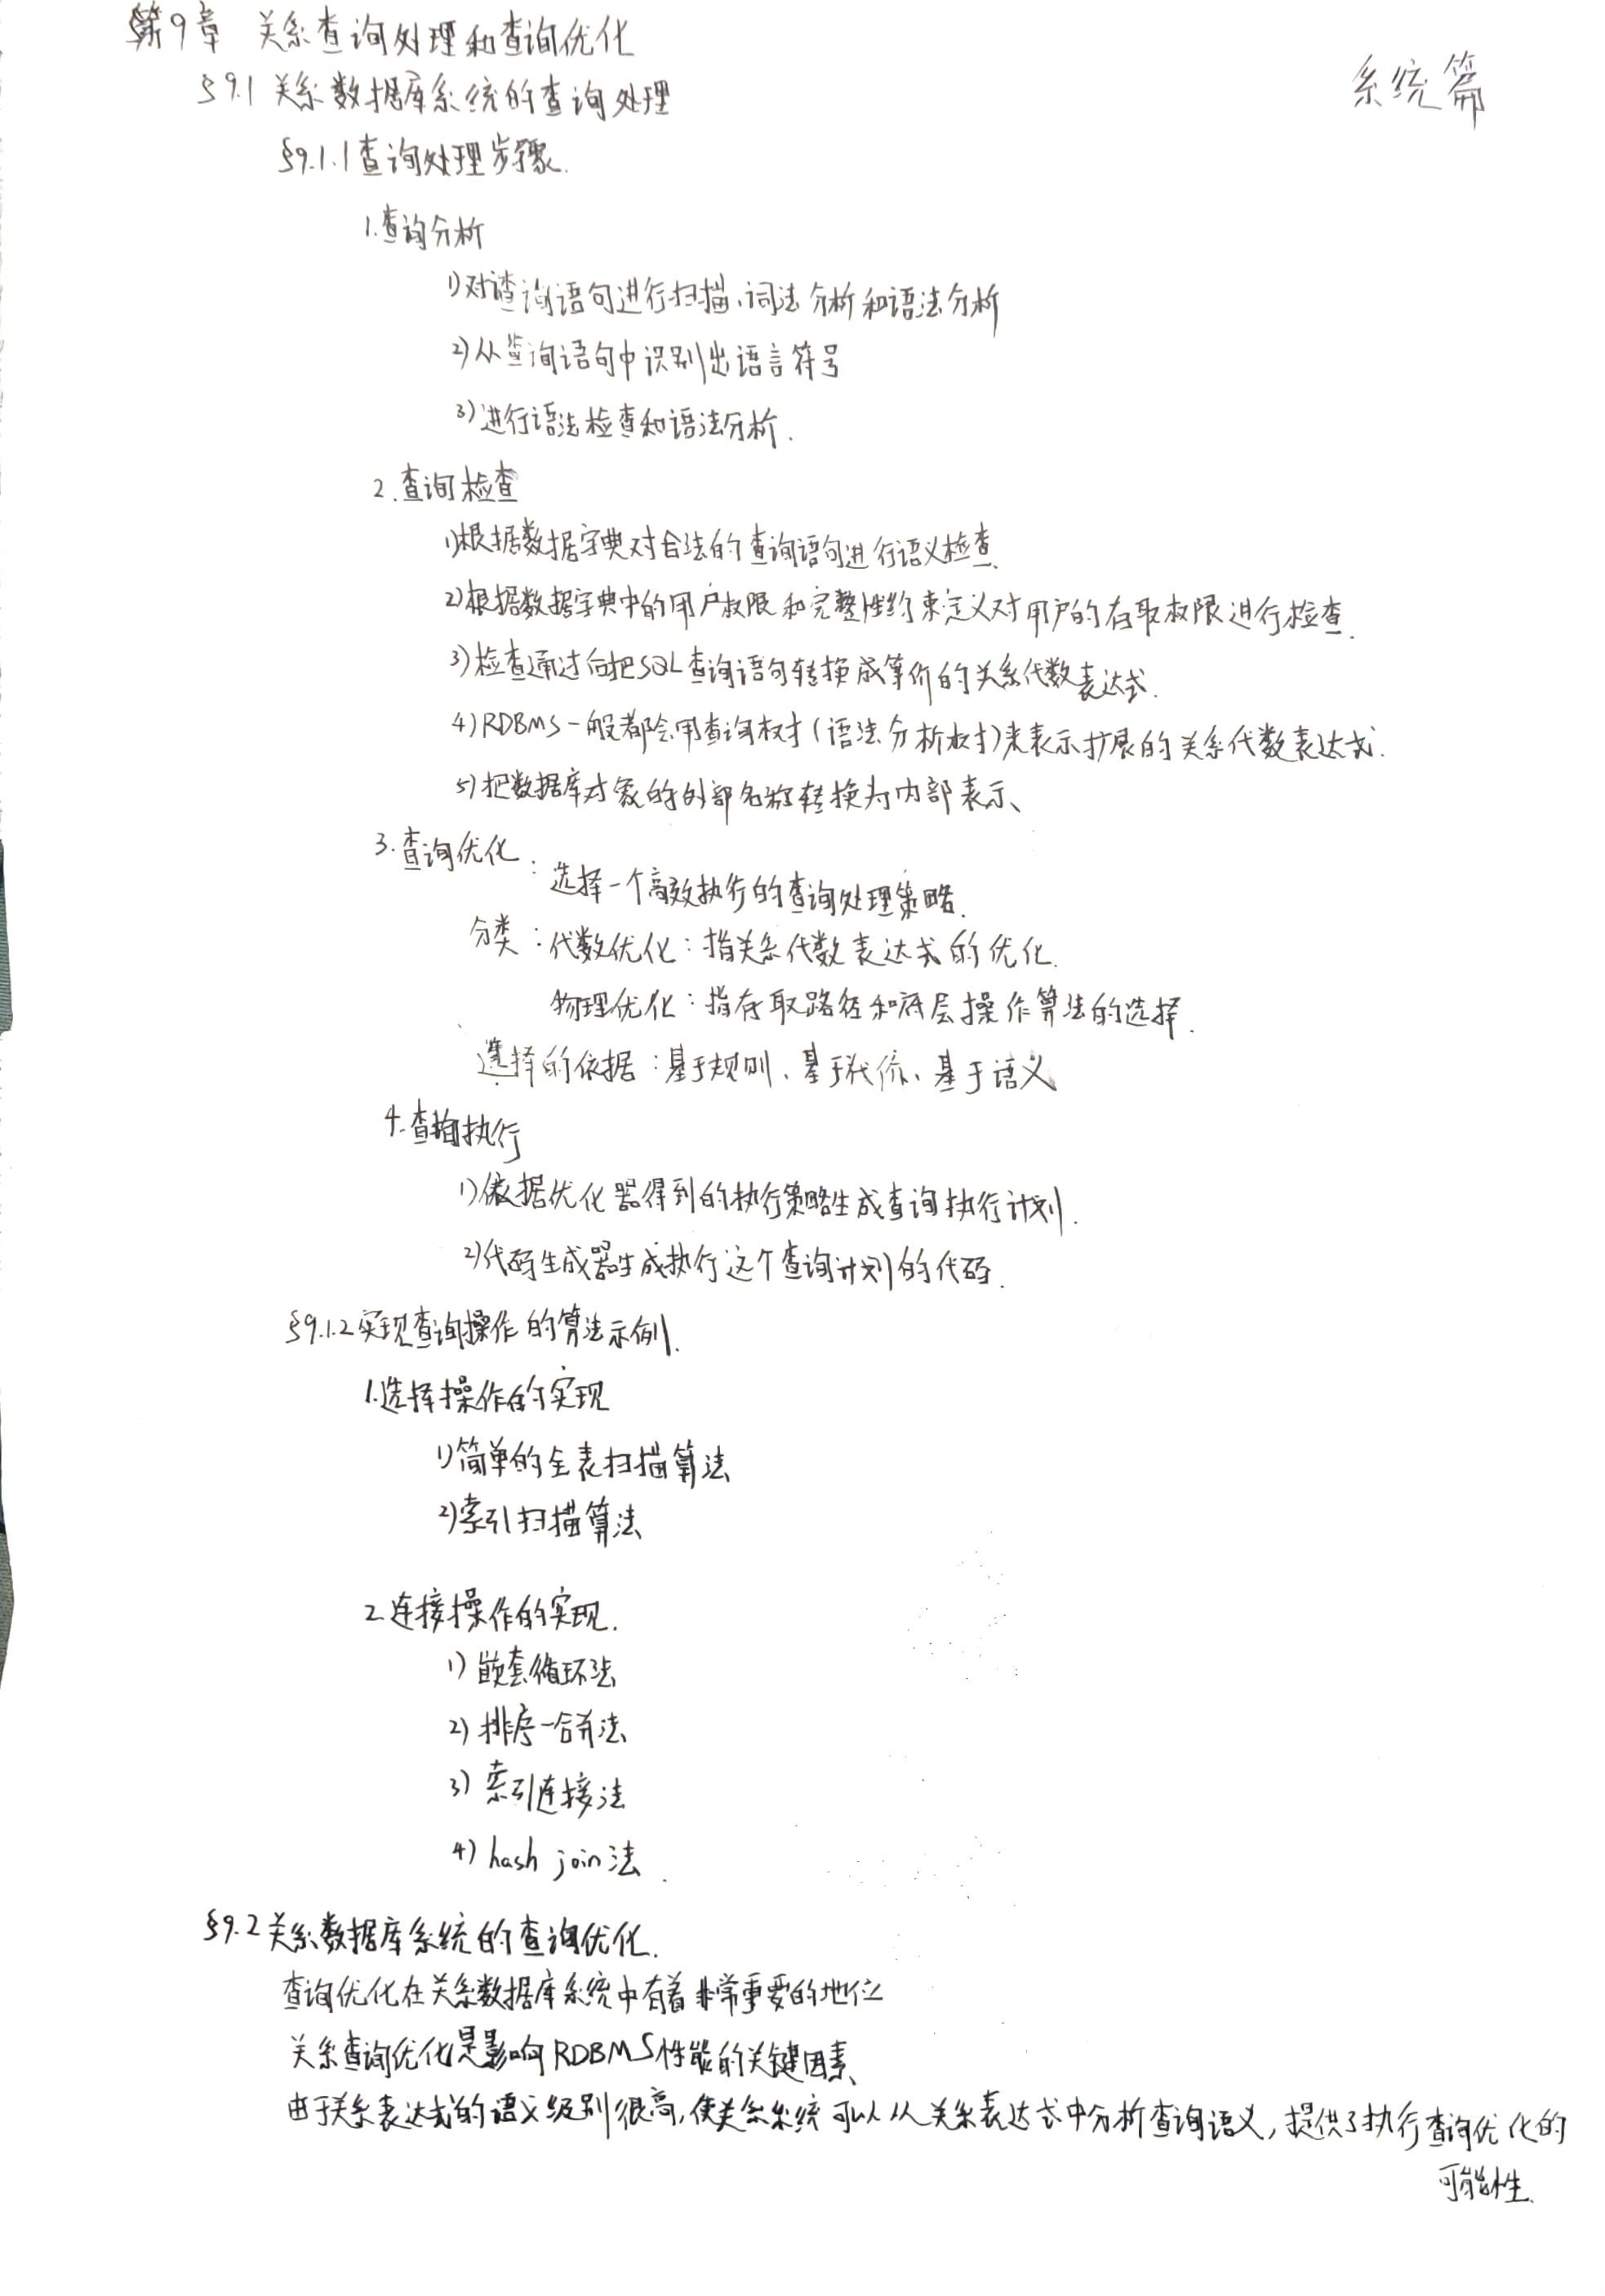 第9章 关系查询处理和查询优化
系统篇
§9.1 关系数据库系统的查询处理
§9.1.1 查询处理步骤.
1.查询分析
1)对查询语句进行扫描、词法分析和语法分析
2)从查询语句中识别出语言符号
3)进行语法检查和语法分析.
2.查询检查
1)根据数据字典对合法的查询语句进行语义检查
2)根据数据字典中的用户权限和完整性约束定义对用户的存取权限进行检查.
3)检查通过后把SQL查询语句转换成等价的关系代数表达式.
4)RDBMS一般都会用查询树(语法分析树)来表示扩展的关系代数表达式.
5)把数据库对象的外部名称转换为内部表示、
3.查询优化:选择一个高效执行的查询处理策略.
分类:代数优化:指关系代数表达式的优化.
物理优化:指存取路径和底层操作算法的选择.
选择的依据:基于规则、基于代价、基于语义
4.查询执行
1)依据优化器得到的执行策略生成查询执行计划.
2)代码生成器生成执行这个查询计划的代码.
§9.1.2实现查询操作的算法示例.
1.选择操作的实现
1)简单的全表扫描算法
2)索引扫描算法
2.连接操作的实现.
1)嵌套循环法
2)排序-合并法
3)索引连接法
4)hash join法.
§9.2关系数据库系统的查询优化.
查询优化在关系数据库系统中有着非常重要的地位
关系查询优化是影响RDBMS性能的关键因素、
由于关系表达式的语义级别很高,使关系系统可以从关系表达式中分析查询语义,提供了执行查询优化的
可能性.